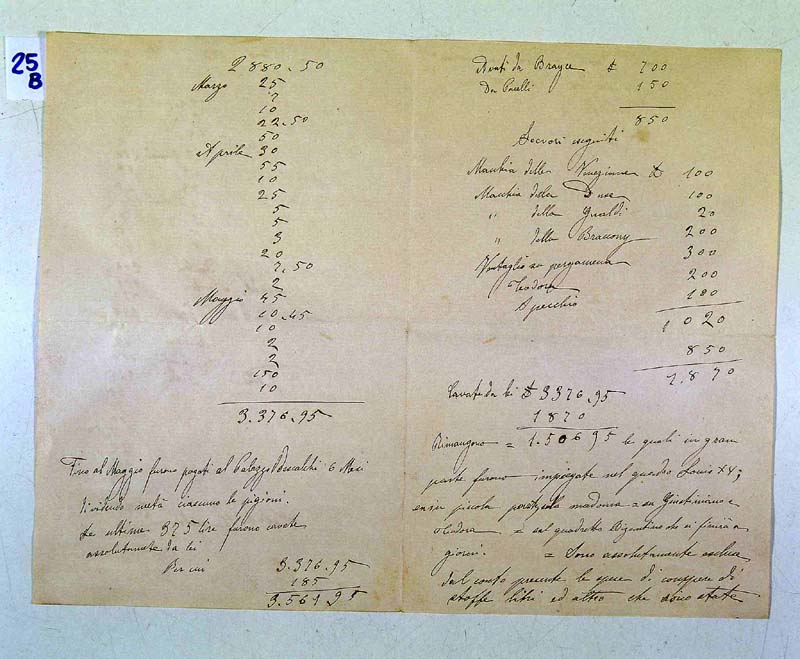 25
B
2880.50
Marzo 25
2
10
22.50
50
Aprile 30
55
10
25
5
5
3
20
2.50
2
Maggio 45
10.45
10
2
2
150
10
3.376.95
Fino al Maggio furono pagati al Palazzo Odescalchi 6 Mesi
dividendo metà ciascuno le pigioni.
Le ultime 375 lire furono avute
assolutamente da lei
Per cui 3.376.95
185
3.561.95
Avuti da Brayce £ 700
Da Pacelli 150
850
Lavori eseguiti
Macchia della £ 100
Macchia della Duse 100
" della Gualdi 20
" della Braccony 200
Ventaglio su pergamena 300
Teodora 200
Specchio 100
1020
850
1.870
Cavate da lei £ 3376.95
1870
Rimangono = 1.506 95 le quali in gran
parte furono impiegate nel quadro Louis XV;
ed in piccola parte sulla madonna = su Giustiniano e
Teodora = sul quadretto Bizantino che si finirà a
giorni. = Sono assolutamente escluse
dal conto presente le spese di compere di
stoffe libri ed altro che sono state